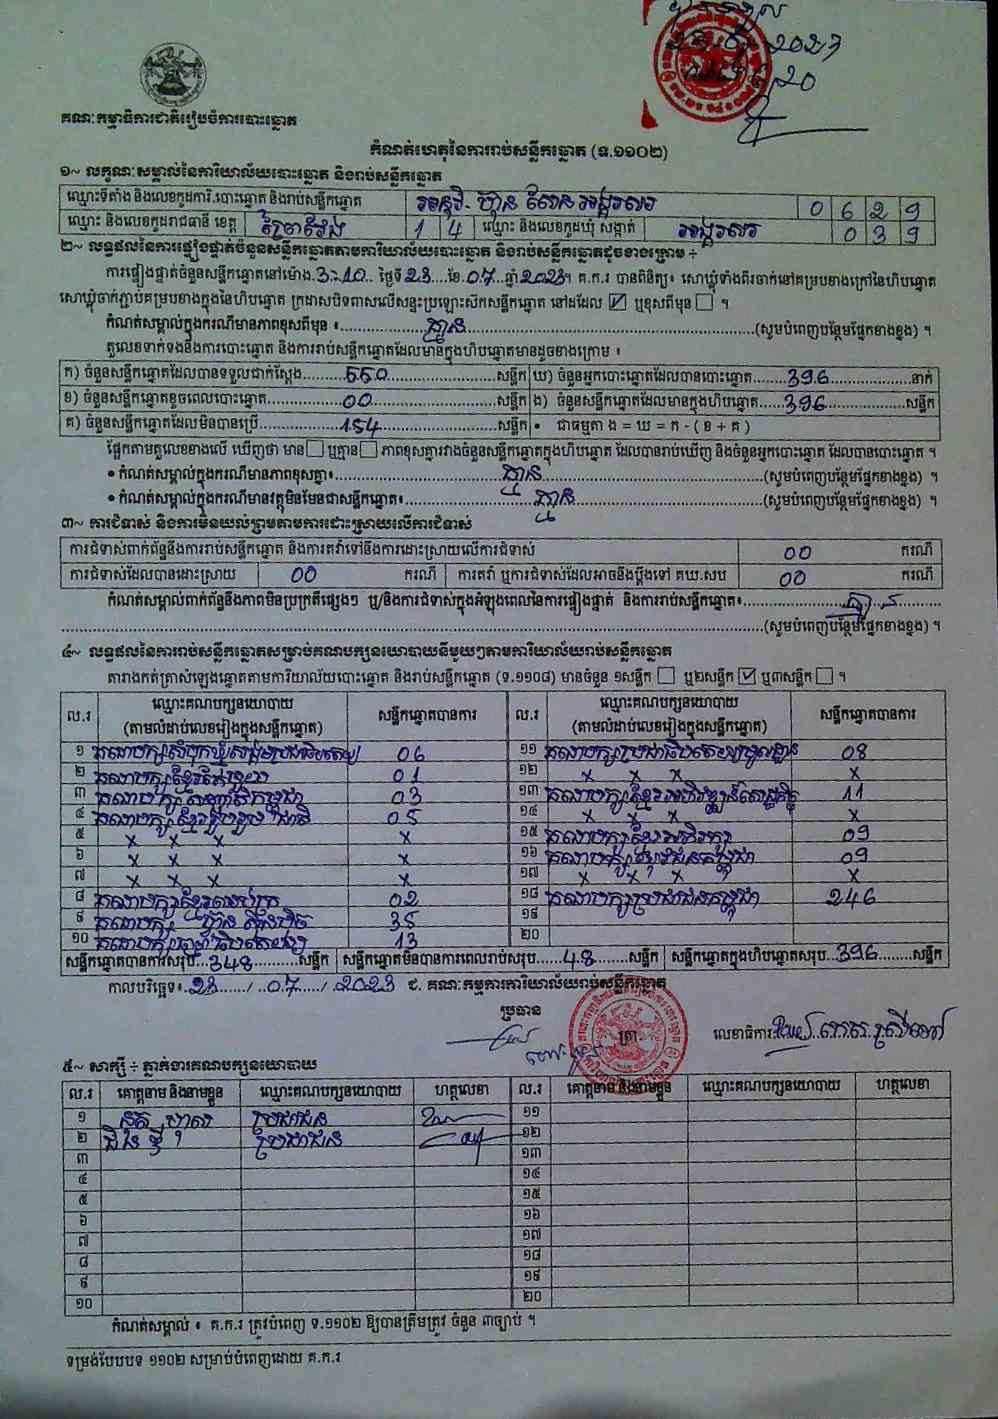 2023
20
គណៈកម្មាធិការជាតិរៀបចំការបោះឆ្នោត
កំណត់ហេតុនៃការរាប់សន្លឹកឆ្នោត (ទ.១១០២)
១~ លក្ខណៈសម្គាល់នៃការិយាល័យបោះឆ្នោត និងរាប់សន្លឹកឆ្នោត
ឈ្មោះទីតាំង និងលេខកូដការិ.បោះឆ្នោត និងរាប់សន្លឹកឆ្នោត អនុវិ. ហ៊ុន សែន អង្គរសរ 0 6 2 9
ឈ្មោះ និងលេខកូដរាជធានី ខេត្ត ព្រៃវែង 1 4 ឈ្មោះ និងលេខកូដឃុំ សង្កាត់ អង្គរសរ 0 3 9
២~ លទ្ធផលនៃការផ្ទៀងផ្ទាត់ចំនួនសន្លឹកឆ្នោតតាមការិយាល័យបោះឆ្នោត និងរាប់សន្លឹកឆ្នោតដូចខាងក្រោម ÷
ការផ្ទៀងផ្ទាត់ចំនួនសន្លឹកឆ្នោតនៅម៉ោង 3:10 ថ្ងៃទី 23 ខែ 07 ឆ្នាំ 2023។ គ.ក.រ បានពិនិត្យ៖ សោឃ្លុំទាំងពីរចាក់នៅគម្របខាងក្រៅនៃហិបឆ្នោត
សោឃ្លុំចាក់ភ្ជាប់គម្របខាងក្នុងនៃហិបឆ្នោត ក្រដាសបិទពាសលើសន្ទះប្រឡោះសឹកសន្លឹកឆ្នោត នៅដដែល ☑ ឬខុសពីមុន ☐ ។
កំណត់សម្គាល់ក្នុងករណីមានភាពខុសពីមុន ៖ គ្មាន (សូមបំពេញបន្ថែមផ្នែកខាងខ្នង) ។
តួលេខទាក់ទងនឹងការបោះឆ្នោត និងការរាប់សន្លឹកឆ្នោតដែលមានក្នុងហិបឆ្នោតមានដូចខាងក្រោម ៖
ក) ចំនួនសន្លឹកឆ្នោតដែលបានទទួលជាក់ស្តែង 550 សន្លឹក ឃ) ចំនួនអ្នកបោះឆ្នោតដែលបានបោះឆ្នោត 396 នាក់
ខ) ចំនួនសន្លឹកឆ្នោតខូចពេលបោះឆ្នោត 00 សន្លឹក ង) ចំនួនសន្លឹកឆ្នោតដែលមានក្នុងហិបឆ្នោត 396 សន្លឹក
គ) ចំនួនសន្លឹកឆ្នោតដែលមិនបានប្រើ 154 សន្លឹក • ជាធម្មតា ង = ឃ = ក - ( ខ + គ )
ផ្អែកតាមតួលេខខាងលើ ឃើញថា មាន ☐ ឬគ្មាន ☐ ភាពខុសគ្នារវាងចំនួនសន្លឹកឆ្នោតក្នុងហិបឆ្នោត ដែលបានរាប់ឃើញ និងចំនួនអ្នកបោះឆ្នោត ដែលបានបោះឆ្នោត ។
• កំណត់សម្គាល់ក្នុងករណីមានភាពខុសគ្នា៖ គ្មាន (សូមបំពេញបន្ថែមផ្នែកខាងខ្នង) ។
• កំណត់សម្គាល់ក្នុងករណីមានវត្ថុមិនមែនជាសន្លឹកឆ្នោត៖ គ្មាន (សូមបំពេញបន្ថែមផ្នែកខាងខ្នង) ។
៣~ ការជំទាស់ និងការមិនយល់ព្រមតាមការដោះស្រាយលើការជំទាស់
ការជំទាស់ពាក់ព័ន្ធនឹងការរាប់សន្លឹកឆ្នោត និងការតវ៉ាទៅនឹងការដោះស្រាយលើការជំទាស់ 00 ករណី
ការជំទាស់ដែលបានដោះស្រាយ 00 ករណី ការតវ៉ា ឬការជំទាស់ដែលអាចនឹងប្តឹងទៅ គឃ.សប 00 ករណី
កំណត់សម្គាល់ពាក់ព័ន្ធនឹងភាពមិនប្រក្រតីផ្សេងៗ ឬ/និងការជំទាស់ក្នុងអំឡុងពេលនៃការផ្ទៀងផ្ទាត់ និងការរាប់សន្លឹកឆ្នោត៖ គ្មាន
(សូមបំពេញបន្ថែមផ្នែកខាងខ្នង) ។
៤~ លទ្ធផលនៃការរាប់សន្លឹកឆ្នោតសម្រាប់គណបក្សនយោបាយនីមួយៗតាមការិយាល័យរាប់សន្លឹកឆ្នោត
តារាងកត់ត្រាសំឡេងឆ្នោតតាមការិយាល័យបោះឆ្នោត និងរាប់សន្លឹកឆ្នោត (ទ.១១០៨) មានចំនួន ១សន្លឹក ☐ ឬ២សន្លឹក ☑ ឬ៣សន្លឹក ☐ ។
ល.រ ឈ្មោះគណបក្សនយោបាយ (តាមលំដាប់លេខរៀងក្នុងសន្លឹកឆ្នោត) សន្លឹកឆ្នោតបានការ ល.រ ឈ្មោះគណបក្សនយោបាយ (តាមលំដាប់លេខរៀងក្នុងសន្លឹកឆ្នោត) សន្លឹកឆ្នោតបានការ
១ គណបក្សសំបុកឃ្មុំសង្គមប្រជាធិបតេយ្យ 06 ១១ គណបក្សប្រជាធិបតេយ្យមូលដ្ឋាន 08
២ គណបក្សខ្មែរតែមួយ 01 ១២ x x x x
៣ គណបក្សសញ្ជាតិកម្ពុជា 03 ១៣ គណបក្សខ្មែរអភិវឌ្ឍន៍សេដ្ឋកិច្ច 11
៤ គណបក្សខ្មែររួបរួមជាតិ 05 ១៤ x x x x
៥ x x x x ១៥ គណបក្សខ្មែរអភិរក្ស 09
៦ x x x x ១៦ គណបក្សយុវជនកម្ពុជា 09
៧ x x x x ១៧ x x x x
៨ គណបក្សខ្មែរឈប់ក្រ 02 ១៨ គណបក្សប្រជាជនកម្ពុជា 246
៩ គណបក្ស ហ៊្វុនស៊ិនប៉ិច 35 ១៩
១០ គណបក្សធម្មាធិបតេយ្យ 13 ២០
សន្លឹកឆ្នោតបានការសរុប 348 សន្លឹក សន្លឹកឆ្នោតមិនបានការពេលរាប់សរុប 48 សន្លឹក សន្លឹកឆ្នោតក្នុងហិបឆ្នោតសរុប 396 សន្លឹក
កាលបរិច្ឆេទ៖ 23 / 07 / 2023 ជ. គណៈកម្មការការិយាល័យរាប់សន្លឹកឆ្នោត
ប្រធាន ត្រា លេខាធិការ
៥~ សាក្សី ÷ ភ្នាក់ងារគណបក្សនយោបាយ
ល.រ គោត្តនាម និងនាមខ្លួន ឈ្មោះគណបក្សនយោបាយ ហត្ថលេខា ល.រ គោត្តនាម និងនាមខ្លួន ឈ្មោះគណបក្សនយោបាយ ហត្ថលេខា
១ ប្រជាជន ១១
២ ប្រជាជន ១២
៣ ១៣
៤ ១៤
៥ ១៥
៦ ១៦
៧ ១៧
៨ ១៨
៩ ១៩
១០ ២០
កំណត់សម្គាល់ ៖ គ.ក.រ ត្រូវបំពេញ ទ.១១០២ ឱ្យបានត្រឹមត្រូវ ចំនួន ៣ច្បាប់ ។
ទម្រង់បែបបទ ១១០២ សម្រាប់បំពេញដោយ គ.ក.រ